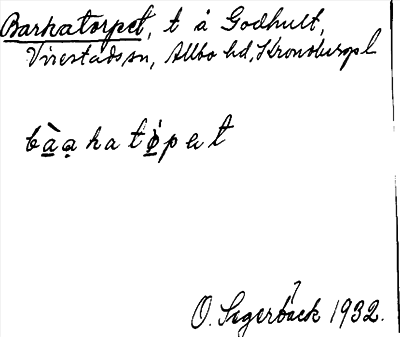 Barkatorpet, t å Godhult,
Virestads sn, Allbo hd, Kronobergs l
bà̱a̤katò̱pet
O. Segerbäck 1932.